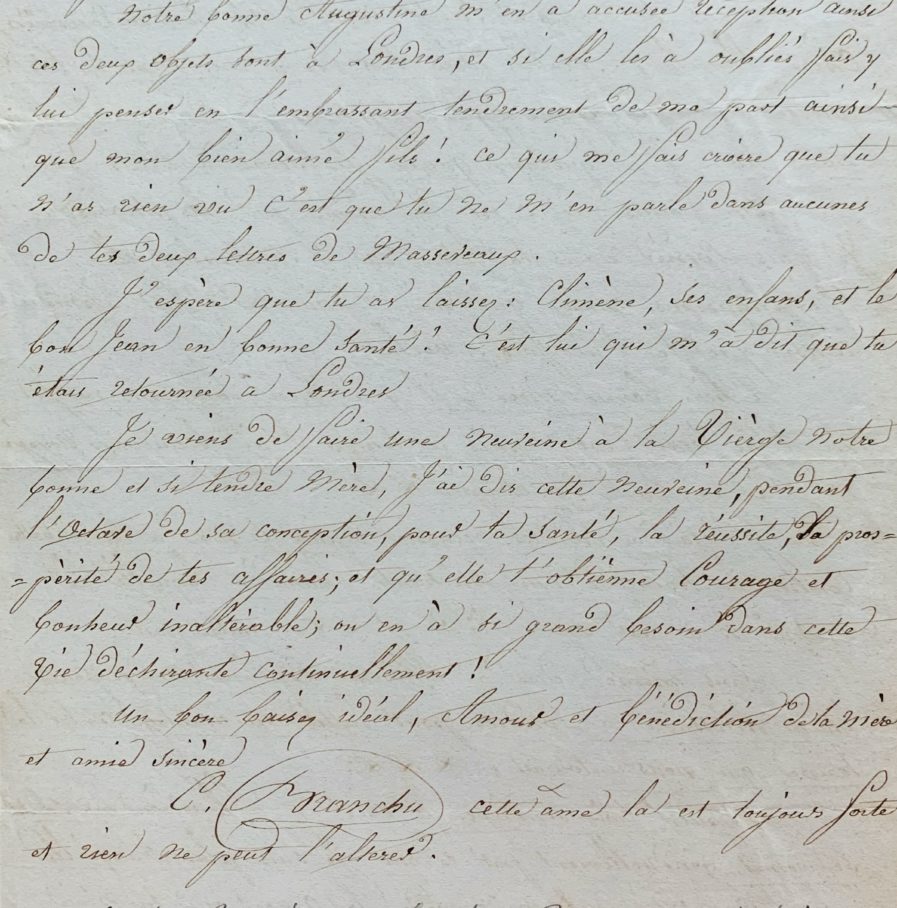 Notre bonne Augustine m'en a accusée réception ainsi
ces deux objets sont à Londres, et si elle les à oubliés fais y
lui penser en l'embrassant tendrement de ma part ainsi
que mon bien aimé fils! ce qui me fais croire que tu
n'as rien vu c'est que tu ne m'en parle dans aucunes
de tes deux lettres de Massevaux.
J'espère que tu as laissez: Climène, ses enfans, et le
bon Jean en bonne santé! C'est lui qui m'à dit que tu
étais retournée a Londres
Je viens de faire une neuveine à la Vièrge notre
bonne et si tendre Mère, J'ai dis cette neuveine, pendant
l'octave de sa conception, pour ta santé, la réussite, la pros=
=périté de tes affaires; et qu'elle t'obtienne Courage et
bonheur inaltèrable; on en à si grand besoin dans cette
vie déchirante continuellement!
Un bon baiser idéal, Amour et bénédiction de la mère
et amie sincère
C. Branchu cette âme la est toujours forte
et rien ne peut l'alterer.